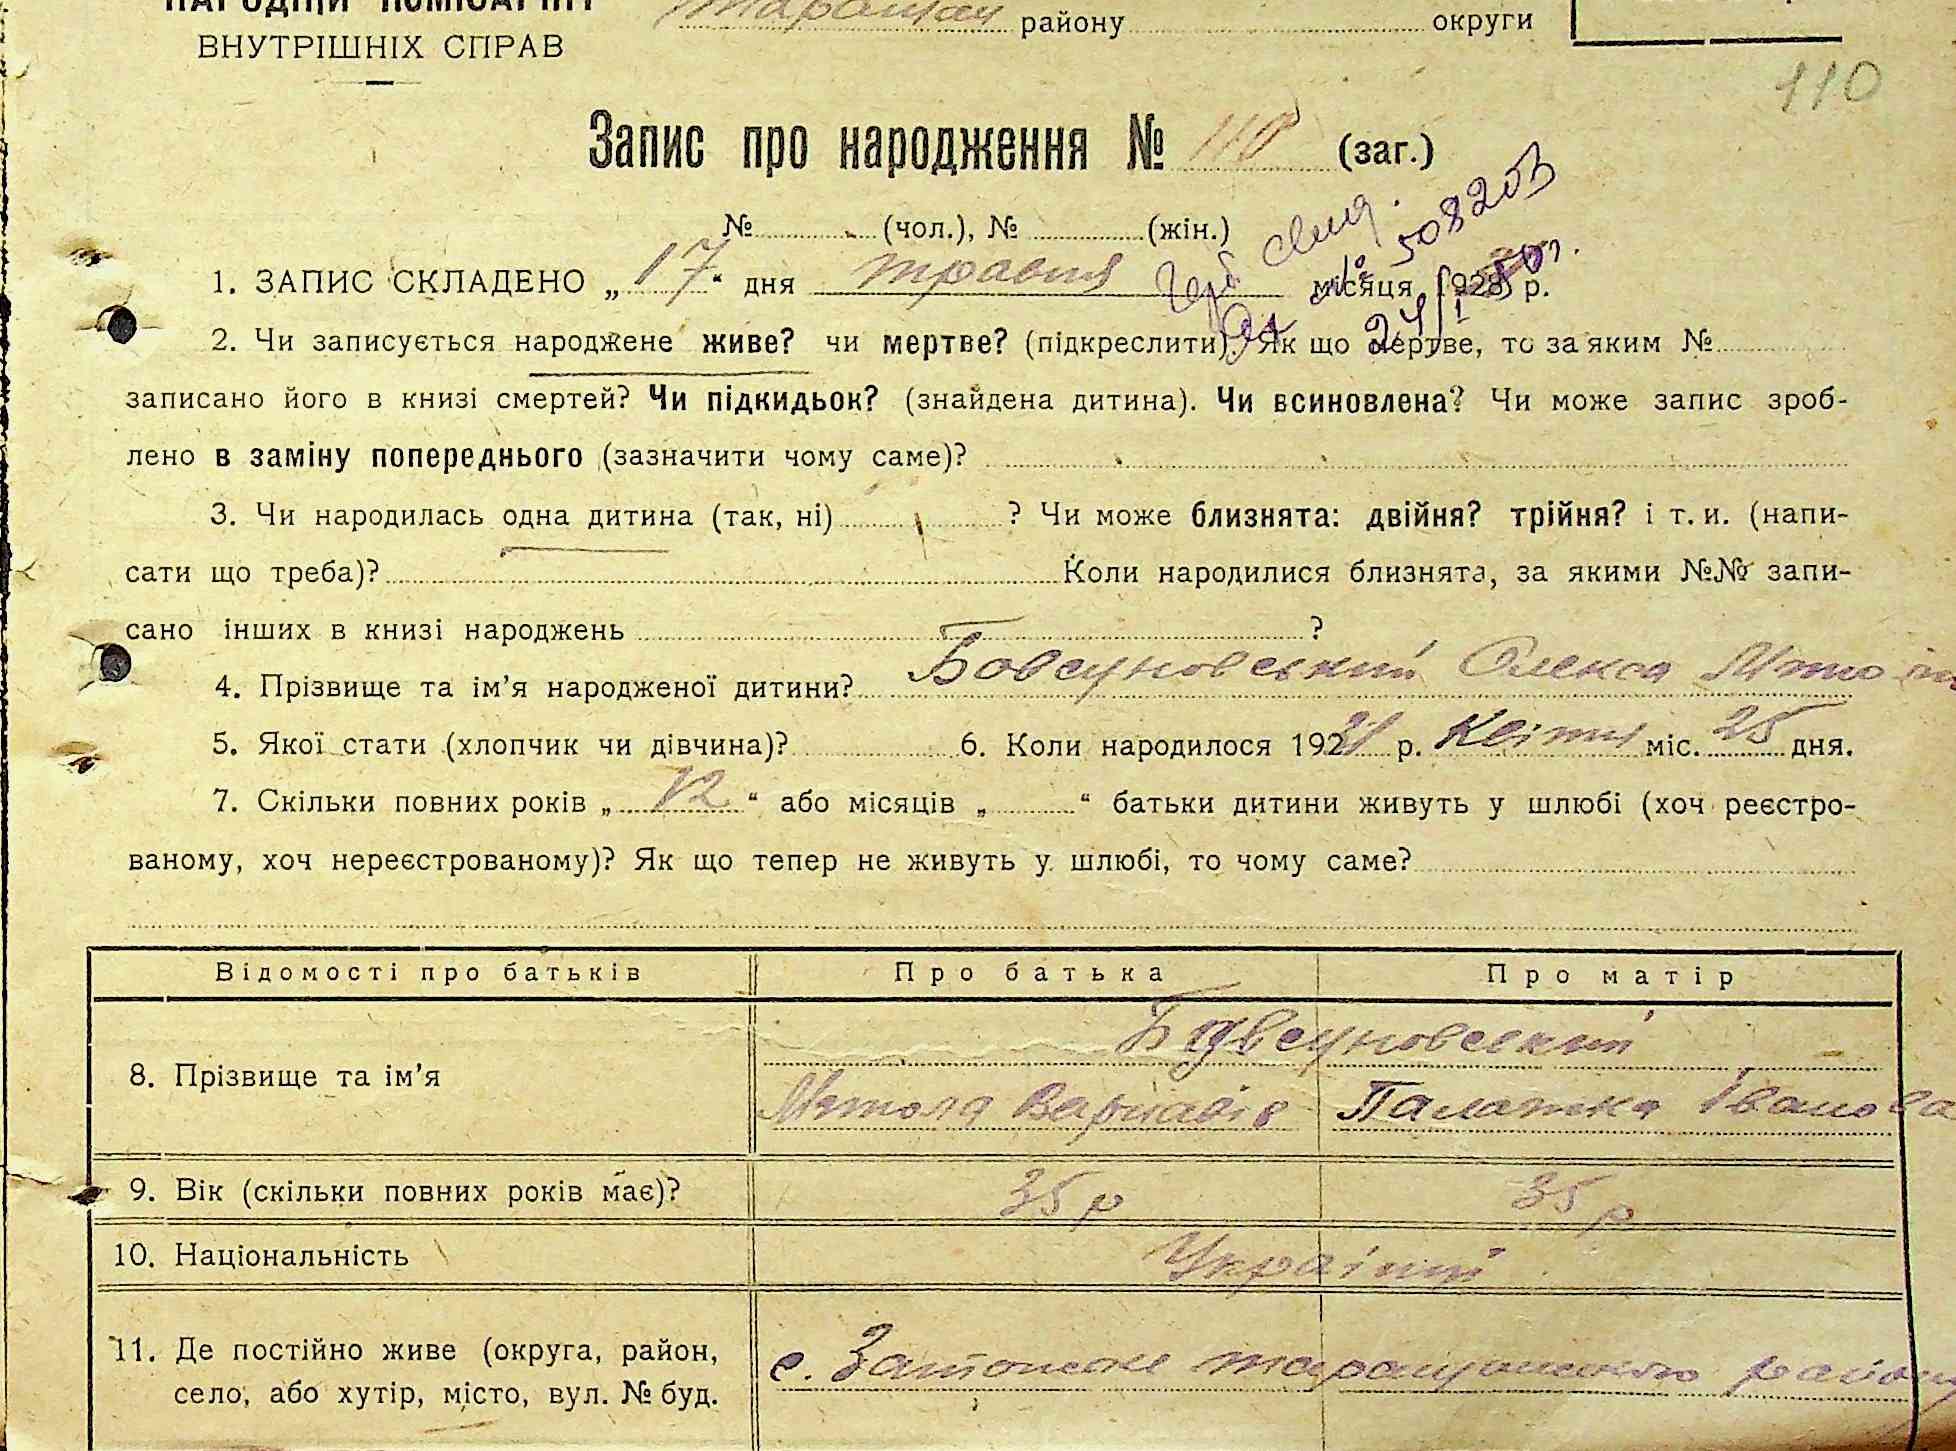 НАРОДНІЙ КОМІСАРІЯТ
ВНУТРІШНІХ СПРАВ
району округи
110
Запис про народження № 110 (заг.)
№ (чол.), № (жін.)
508203
1. ЗАПИС СКЛАДЕНО „17“ дня травня місяця 192 р.
2. Чи записується народжене живе? чи мертве? (підкреслити). Як що мертве, то за яким №
записано його в книзі смертей? Чи підкидьок? (знайдена дитина). Чи всиновлена? Чи може запис зроб-
лено в заміну попереднього (зазначити чому саме)?
3. Чи народилась одна дитина (так, ні) ? Чи може близнята: двійня? трійня? і т. и. (напи-
сати що треба)? Коли народилися близнята, за якими №№ запи-
сано інших в книзі народжень ?
4. Прізвище та ім’я народженої дитини? Бовсуновський Олекса
5. Якої стати (хлопчик чи дівчина)? 6. Коли народилося 192 р. Квітня міс. 25 дня.
7. Скільки повних років „12“ або місяців „ “ батьки дитини живуть у шлюбі (хоч реєстро-
ваному, хоч нереєстрованому)? Як що тепер не живуть у шлюбі, то чому саме?
Відомості про батьків Про батька Про матір
8. Прізвище та ім’я Бовсуновський
Іванова
9. Вік (скільки повних років має)? 35 р 35 р
10. Національність
11. Де постійно живе (округа, район,
село, або хутір, місто, вул. № буд. с.